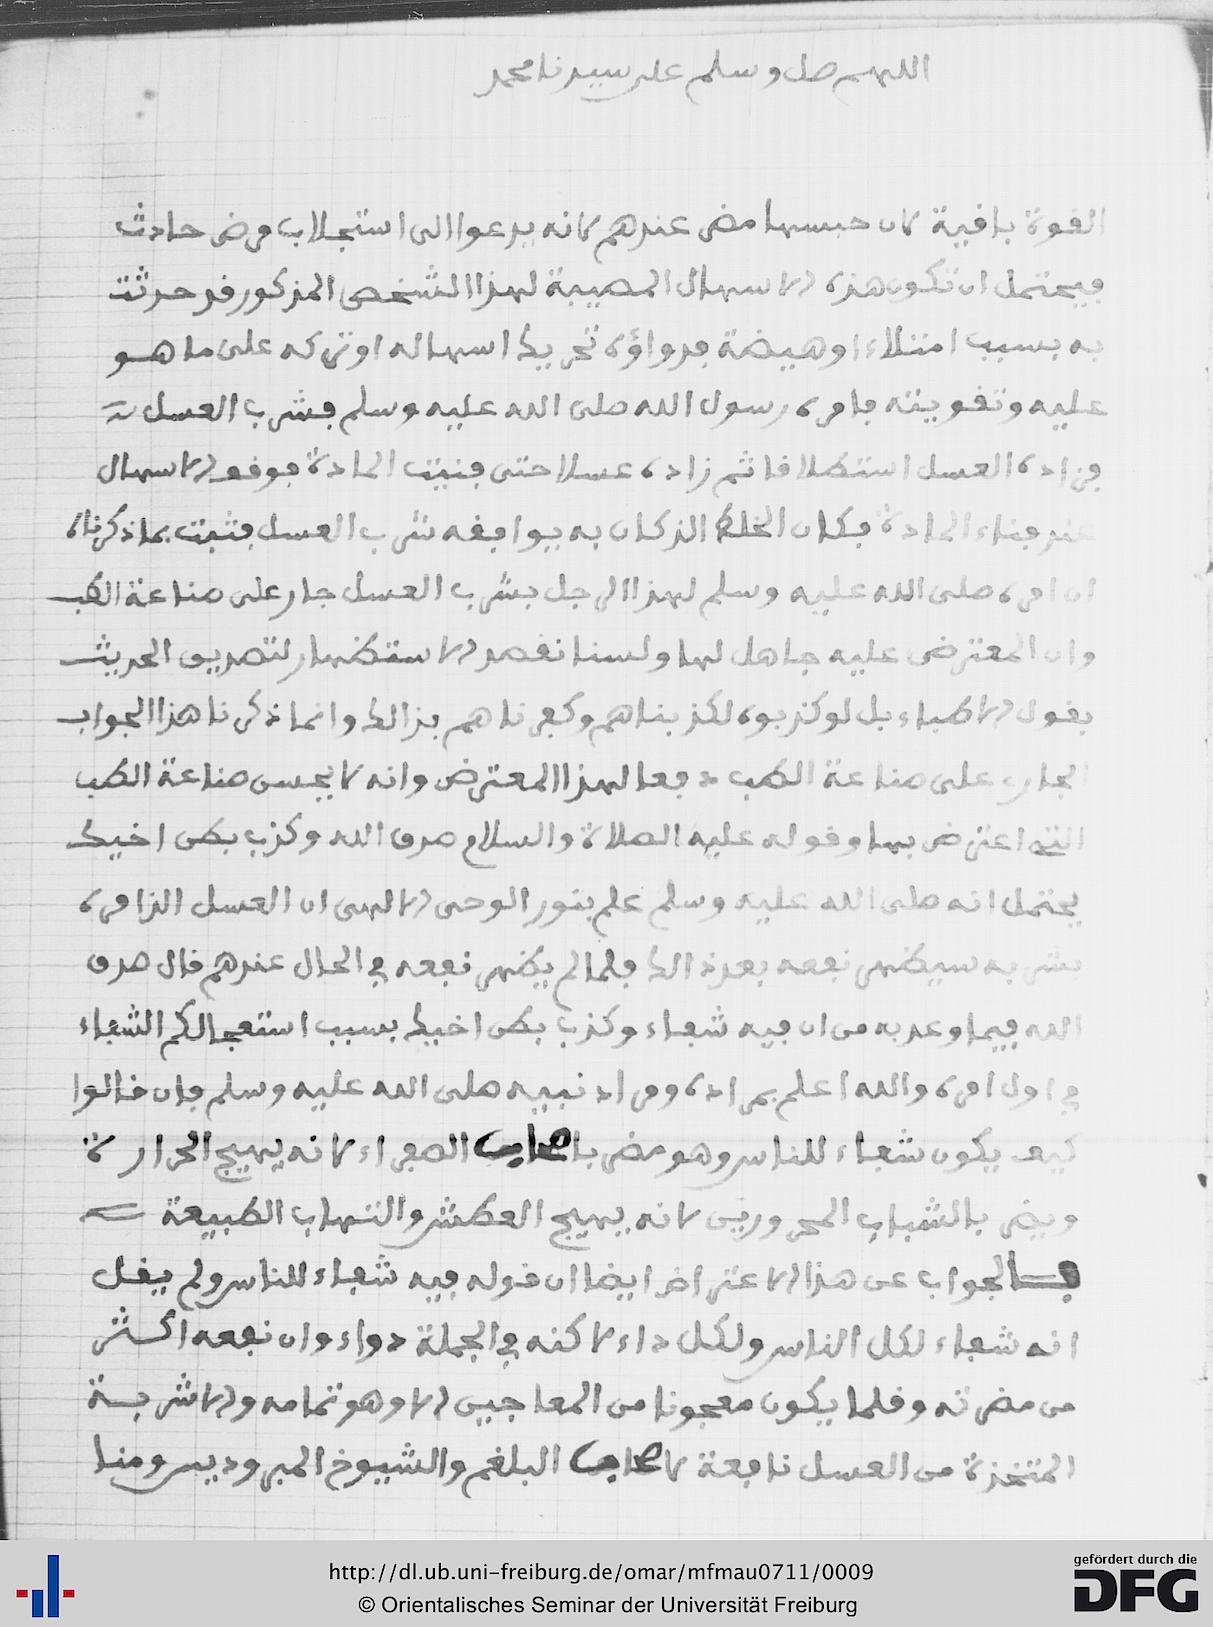 اللهم صل وسلم على سيدنا محمد
القوة باقية لان حبسها مضر عندهم لانه يدعوا الى استجلاب مرض حادث
فيحتمل ان تكون هذه الاسهال المصيبة لهذا الشخص المذكور قد حدثت
به بسبب امتلاء او هيضة فدواؤه تحريك اسهاله او تركه على ما هو
عليه وتقويته فامره رسول الله صلى الله عليه وسلم بشرب العسل
فزاده العسل استطلاقا ثم زاده عسلا حتى فنيت المادة فوقف الاسهال
عند فناء المادة فكان الخلط الذ كان به يوافقه شرب العسل فثبت بما ذكرناه
ان امره صلى الله عليه وسلم لهذا الرجل بشرب العسل جار على صناعة الطب
وان المعترض عليه جاهل لها ولسنا نقصد الاستظهار لتصديق الحديث
بقول الاطباء بل لو كذبوه لكذبناهم وكفرناهم بذالك وانما ذكرنا هذا الجواب
الجار على صناعة الطب دفعا لهذا المعترض وانه لا يحسن صناعة الطب
التى اعترض بها وقوله عليه الصلاة والسلام صدق الله وكذب بطن اخيك
يحتمل انه صلى الله عليه وسلم علم بنور الوحى الالهى ان العسل الذ امره
بشربه سيظهر نفعه بعد ذالك فلما لم يظهر نفعه في الحال عندهم قال صدق
الله فيما وعد به من ان فيه شفاء وكذب بطن اخيك بسبب استعجالكم الشفاء
في اول امره والله اعلم بمراده ومراد نبيه صلى الله عليه وسلم فان قالوا
كيف يكون شفاء للناس وهو مضر باصحاب الصفراء لانه يهيج الحرارة
ويضر بالشباب المحرورين لانه يهيج العطش والتهاب الطبيعة
فالجواب عن هذا الاعتراض ايضا ان قوله فيه شفاء للناس ولم يقل
انه شفاء لكل الناس ولكل داء لاكنه في الجملة دواء وان نفعه اكثر
من مضرته وقلما يكون معجونا من المعاجين الا وهو تمامه والاشربة
المتخذة من العسل نافعة لاصحاب البلغم والشيوخ المبرودين ومنا
http://dl.ub.uni-freiburg.de/omar/mfmau0711/0009
© Orientalisches Seminar der Universität Freiburg
gefördert durch die
DFG